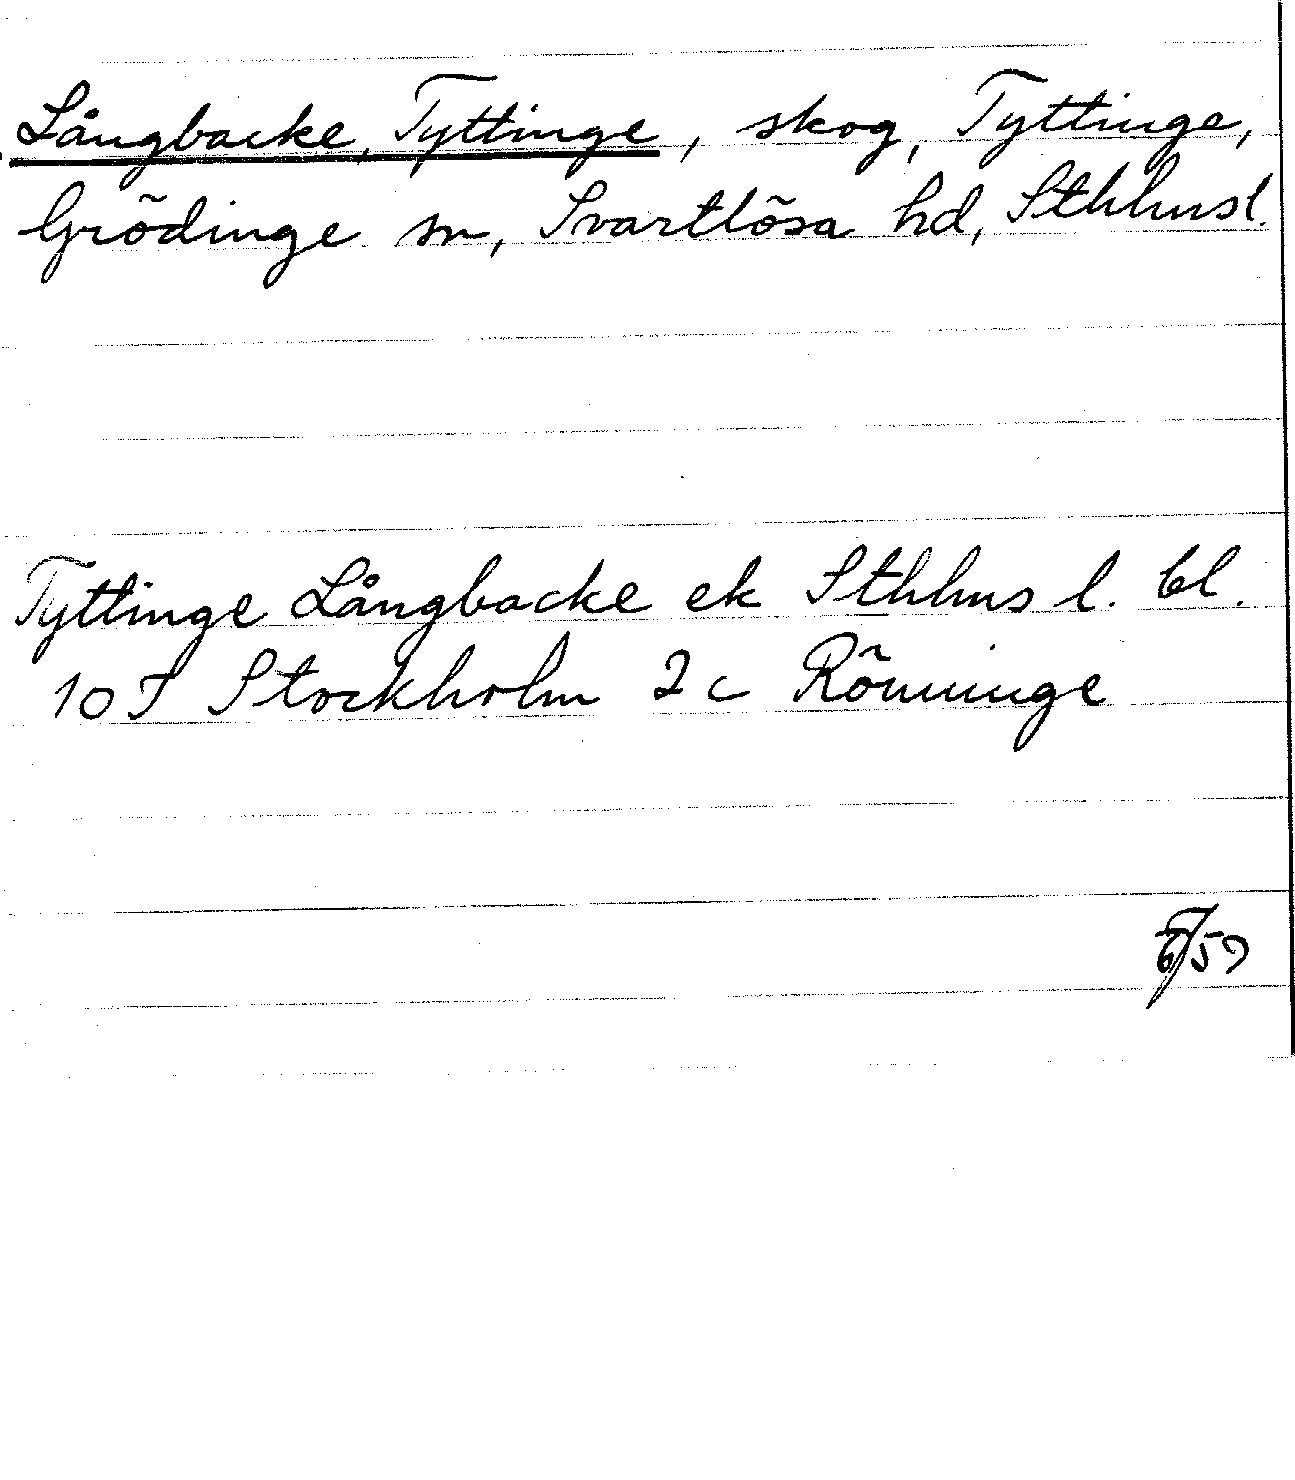 Långbacke, Tyttinge, skog, Tyttinge,
Grödinge sn, Svartlösa hd, Sthhusl.
Tyttinge Långbacke ek Sthhus l. bl.
10 I Stockholm 2 c Rönninge
59